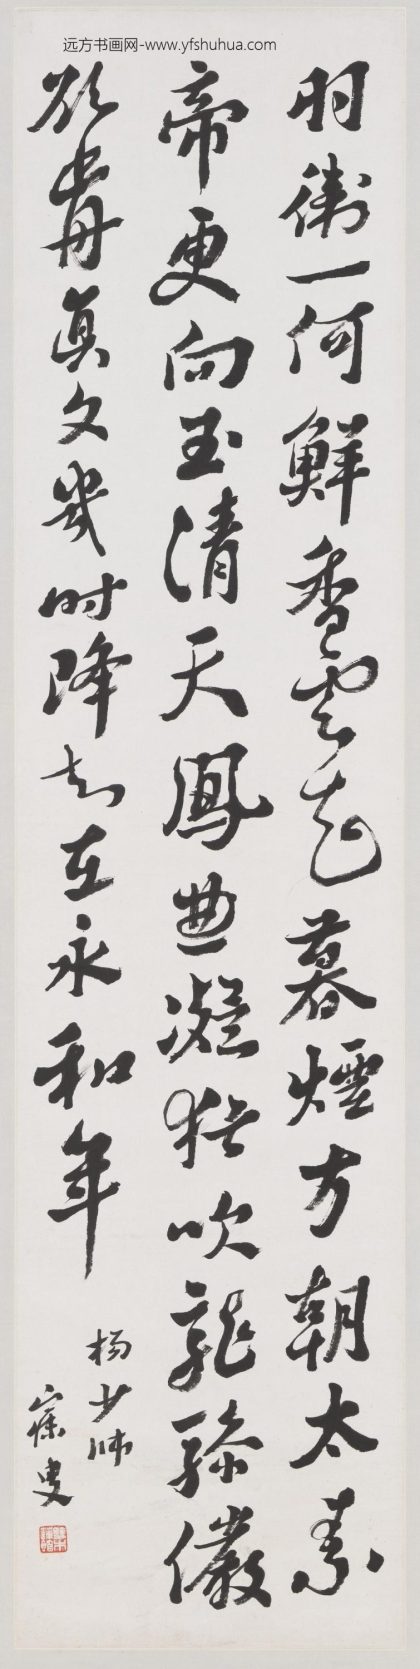 远方书画网-www.yfshuhua.com
羽衛一何鮮香雲起暮煙方朝太素
帝更向玉清天鳳曲凝猶吹龍驂儼
欲前真文幾時降知在永和年
楊少師
寐叟